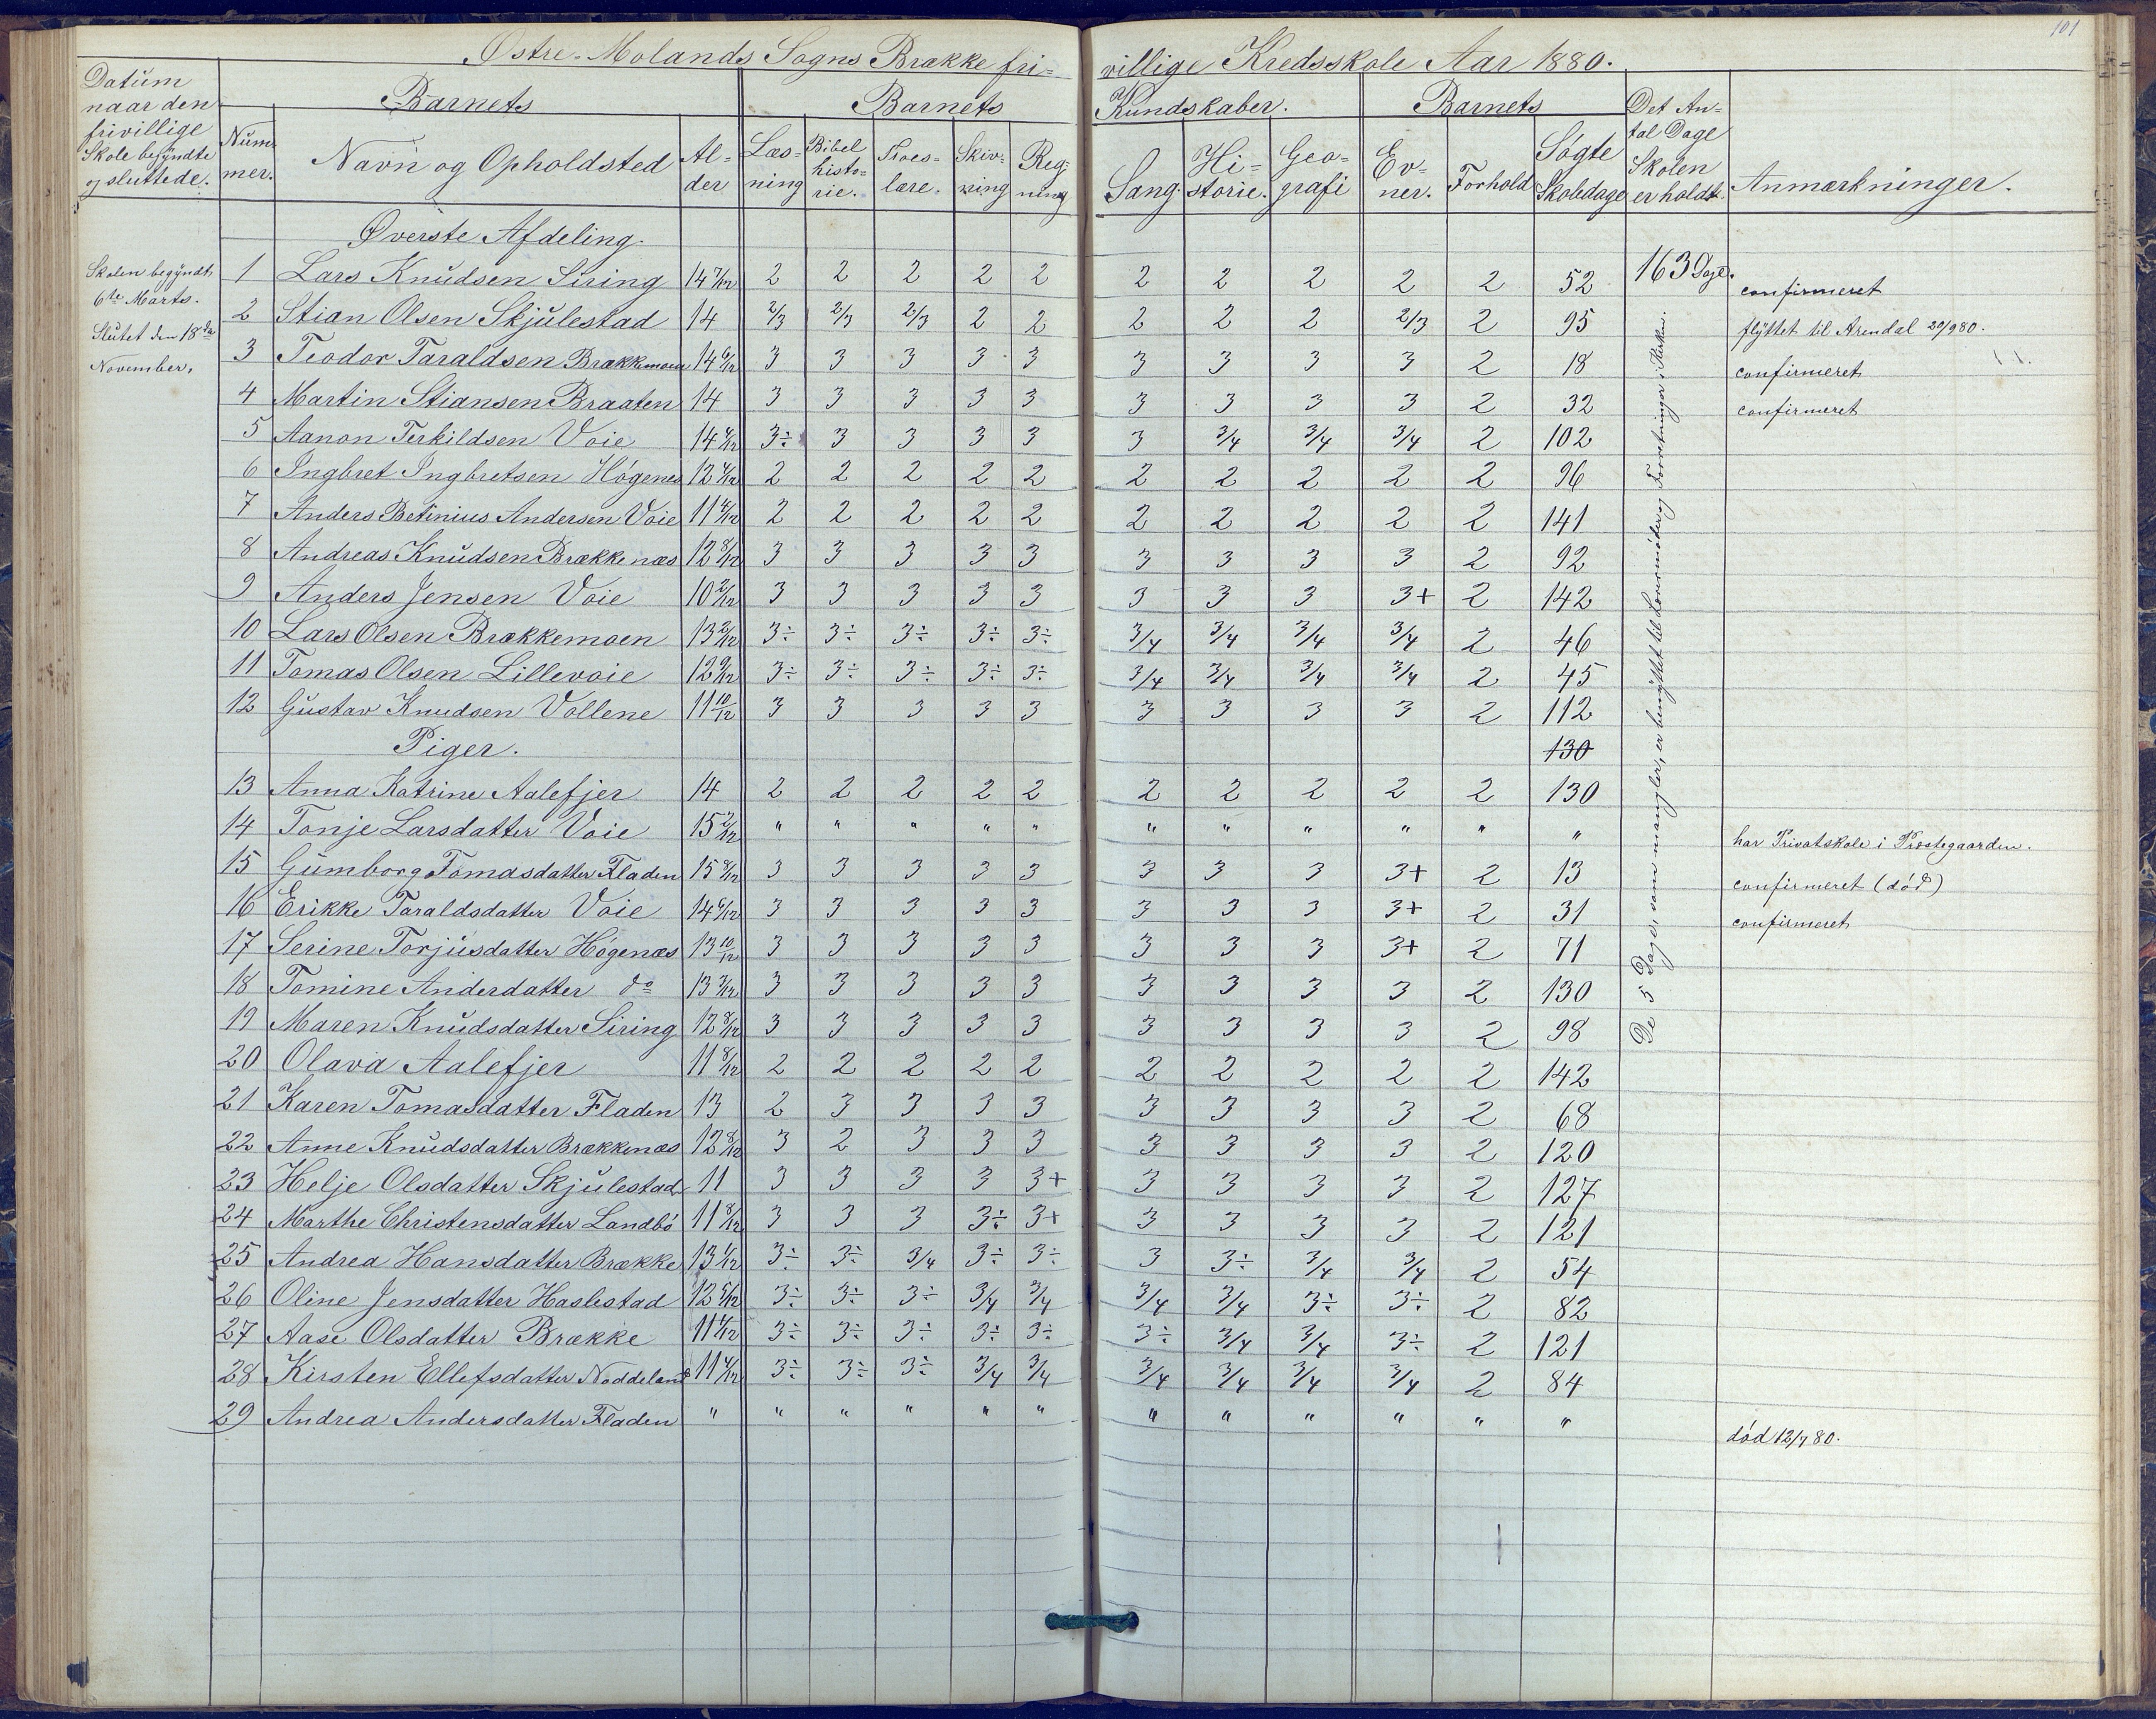 101
Østre-Molands Sogns Brække fri- villige Kredsskole Aar 1880.
Datum naar den frivillige Skole begyndte og sluttede. | Num- mer. | Barnets Navn og Opholdsted | Al- der | Barnets Kundskaber. Læs- ning | Bibel histo- rie. | Troes- lære. | Skriv- ning | Reg- ning | Sang. | Hi- storie. | Geo- grafi | Barnets Ev- ner. | Forhold | Søgte Skoledage | Det An- tal Dage Skolen er holdt. | Anmærkninger.
Øverste Afdeling.
Skolen begyndt
6te Marts.
Slutet den 18de
November.
163 Dage.
1 Lars Knudsen Siring 14 7/12 2 2 2 2 2 2 2 2 2 2 52 confirmeret
2 Stian Olsen Skjulestad 14 2/3 2/3 2/3 2 2 2 2 2 2/3 2 95 flyttet til Arendal 20/9 80.
3 Teodor Taraldsen Brækkemoen 14 6/12 3 3 3 3 3 3 3 3 3 2 18 confirmeret
4 Martin Stiansen Braaten 14 3 3 3 3 3 3 3 3 3 2 32 confirmeret
5 Aanon Terkildsen Voie 14 4/12 3÷ 3 3 3 3 3 3/4 3/4 3/4 2 102
6 Ingbret Ingbretsen Høgenes 12 4/12 2 2 2 2 2 2 2 2 2 2 96
7 Anders Betinius Andersen Voie 11 4/12 2 2 2 2 2 2 2 2 2 2 141
8 Andreas Knudsen Brækkenæs 12 8/12 3 3 3 3 3 3 3 3 3 2 92
9 Anders Jensen Voie 10 2/12 3 3 3 3 3 3 3 3 3+ 2 142
10 Lars Olsen Brækkemoen 13 2/12 3÷ 3÷ 3÷ 3÷ 3÷ 3/4 3/4 3/4 3/4 2 46
11 Tomas Olsen Lillevoie 12 9/12 3÷ 3÷ 3÷ 3÷ 3÷ 3/4 3/4 3/4 3/4 2 45
12 Gustav Knudsen Vollene 11 10/12 3 3 3 3 3 3 3 3 3 2 112
Piger. 130
13 Anna Katrine Aalefjer 14 2 2 2 2 2 2 2 2 2 2 130
14 Tonje Larsdatter Voie 15 2/12 " " " " " " " " " " " har Privatskole i Præstegaarden.
15 Gumborg Tomasdatter Fladen 15 8/12 3 3 3 3 3 3 3 3 3+ 2 13 confirmeret (død)
16 Erikke Taraldsdatter Voie 14 6/12 3 3 3 3 3 3 3 3 3+ 2 31 confirmeret
17 Serine Torjusdatter Høgenæs 13 10/12 3 3 3 3 3 3 3 3 3+ 2 71
18 Tomine Anderdatter do 13 3/12 3 3 3 3 3 3 3 3 3 2 130
19 Maren Knudsdatter Siring 12 8/12 3 3 3 3 3 3 3 3 3 2 98
20 Olava Aalefjer 11 8/12 2 2 2 2 2 2 2 2 2 2 142
21 Karen Tomasdatter Fladen 13 2 3 3 3 3 3 3 3 3 2 68
22 Anne Knudsdatter Brækkenæs 12 8/12 3 2 3 3 3 3 3 3 3 2 120
23 Helje Olsdatter Skjulestad 11 3 3 3 3 3+ 3 3 3 3 2 127
24 Marthe Christensdatter Landbø 11 8/12 3 3 3 3÷ 3+ 3 3 3 3 2 121
25 Andrea Hansdatter Brække 13 1/12 3÷ 3÷ 3/4 3÷ 3÷ 3 3÷ 3/4 3/4 2 54
26 Oline Jensdatter Haslestad 12 5/12 3÷ 3÷ 3÷ 3/4 3/4 3/4 3/4 3÷ 3÷ 2 82
27 Aase Olsdatter Brække 11 4/12 3÷ 3÷ 3÷ 3÷ 3÷ 3÷ 3/4 3/4 3÷ 2 121
28 Kirsten Ellefsdatter Noddeland 11 4/12 3÷ 3÷ 3÷ 3/4 3/4 3/4 3/4 3/4 3/4 2 84
29 Andrea Andersdatter Fladen " " " " " " " " " " " " død 12/7 80.
De 5 Dager, som mangler, er benyttet til og Forretninger i Kirken.